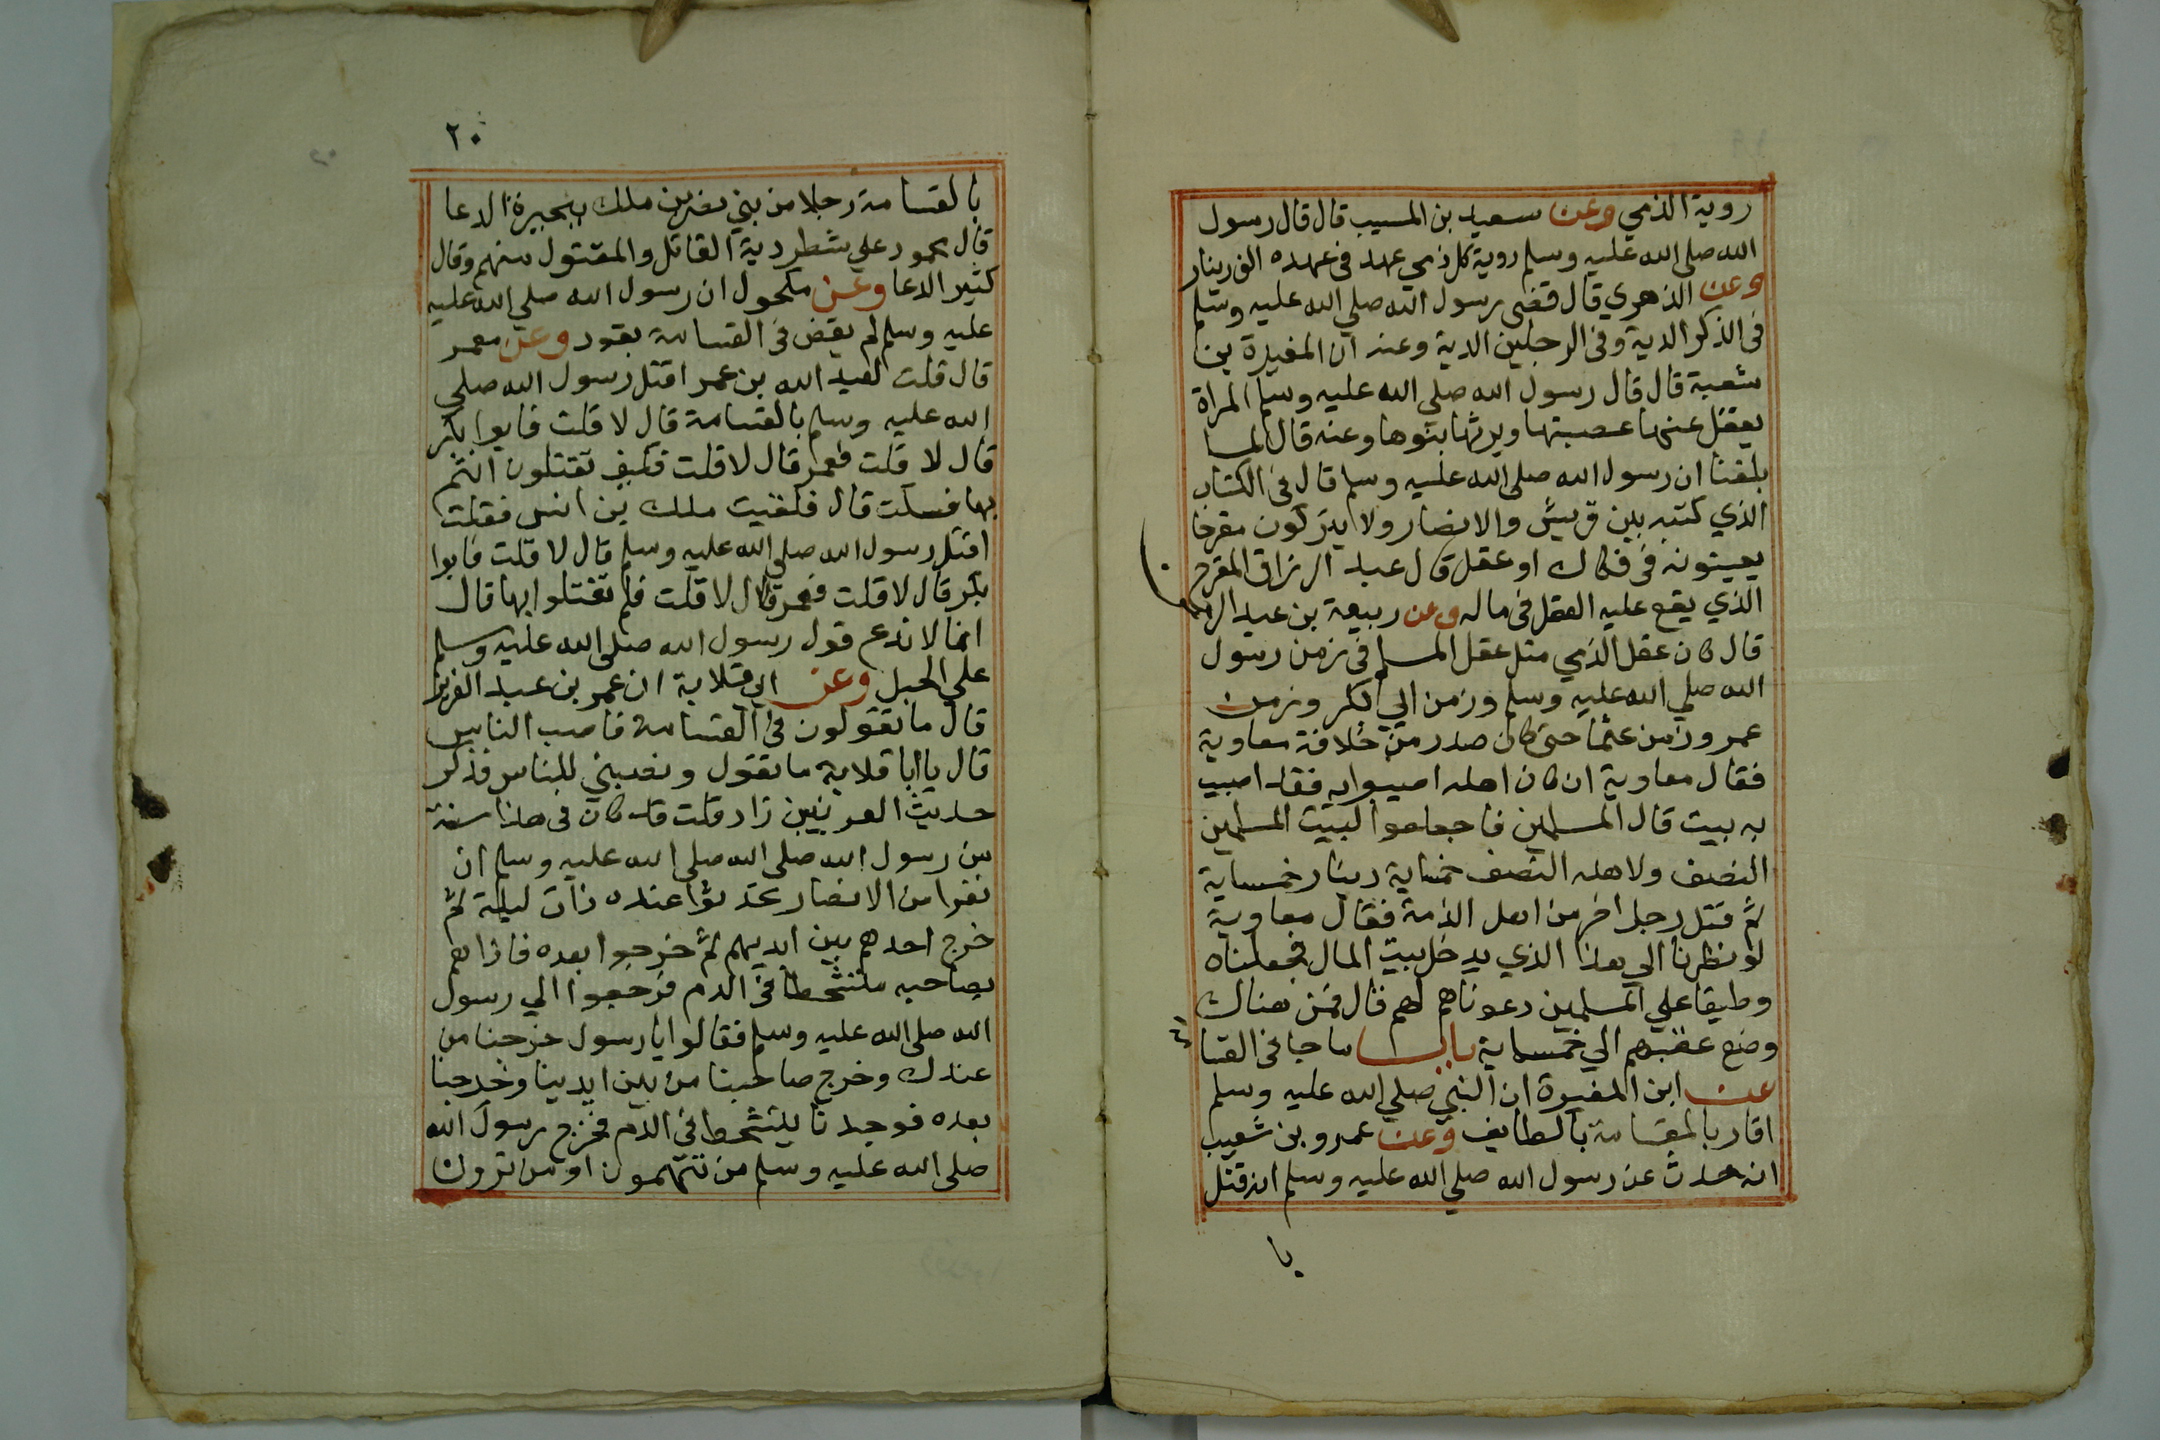 روية الذمي وعن سعيد بن المسيب قال قال رسول
الله صلى الله عليه وسلم روية كل ذمي عهد فى عهده الف دينار
وعن الذهري قال قضى رسول الله صلي الله عليه وسلم
فى الذكر الدية وفى الرجلين الدية وعنه ان المغيرة بن
شعبة قال قال رسول الله صلى الله عليه وسلم المراة
يعقل عنها عصبتها ويرثها بنوها وعنه قال لما
بلغنا ان رسول الله صلى الله عليه وسلم قال فى الكتاب
الذي كتبه بين قريش والانصار ولا يتركون مفرحا
يعينونه فى فكاك او عقل قال عبد الرزاق المفرح
الذي يقع عليه العقل فى ماله وعن ربيعة بن عبد الرحمن
قال كان عقل الذمي مثل عقل المسلم فى زمن رسول
الله صلي الله عليه وسلم وزمن ابي بكر وزمن
عمر وزمن عثما حتى كان صدر من خلافة معاوية
فقال معاوية ان كان اهله اصيبوا به فقد اصيب
به بيت قال المسلمين فاجعلوا لبيت المسلمين
النصف ولاهله النصف خمساية دينار خمساية
ثم قتل رجل اخر من اهل الذمة فقال معاوية
لو نظرنا الي هذا الذي يدخل بيت المال فجعلناه
وطيفا علي المسلمين دعوناهم لهم قال فمن هناك
وضع عقبهم الي خمساية باب ما جا فى القسا
عن ابن المغيرة ان النبي صلي الله عليه وسلم
اقاد بالقسامة بالطايف وعن عمرو بن شعيب
انه حدث عن رسول الله صلي الله عليه وسلم انه قتل
با
٢٠
بالقسامة رجلا من بني نضر بن ملك ببحيرة الدعا
قال محمود علي شطر دية القاتل والمقتول منهم وقال
كثير الدعا وعن مكحول ان رسول الله صلي الله عليه
عليه وسلم لم يقض فى القسامة بقود وعن معمر
قال قلت لعبيد الله بن عمر اقتل رسول الله صلي
الله عليه وسلم بالقسامة قال لا قلت فابوا بكر
قال لا قلت فعمر قال لا قلت فكيف تقتلون انتم
بها فسكت قال فلقيت ملك بن انس فقلت
اقتل رسول الله صلي الله عليه وسلم قال لا قلت فابوا
بكر قال لا قلت فعمر قال لا قلت فلم تقتلوا بها قال
انا لا ندع قول رسول الله صلى الله عليه وسلم
علي الحبل وعن ابي قلابة ان عمر بن عبد العزيز
قال ما تقولون فى القسامة فاصب الناس
قال يا ابا قلابة ما تقول ونصبني للناس فذكر
حديث العرنيين زاد قلت قد كان فى هذا سنة
من رسول الله صلى الله صلى الله عليه وسلم ان
نفرا من الانصار تحدثوا عنده ذات ليلة ثم
خرج احدهم بين ايديهم ثم خرجوا بعده فاذا هم
بصاحبه متشحطا فى الدم فرجعوا الي رسول
الله صلى الله عليه وسلم فقالوا يا رسول خرجنا من
عندك وخرج صاحبنا من بين ايدينا وخرجنا
بعده فوجدنا يتشحط فى الدم فخرج رسول الله
صلى الله عليه وسلم من تتهمون او من ترون